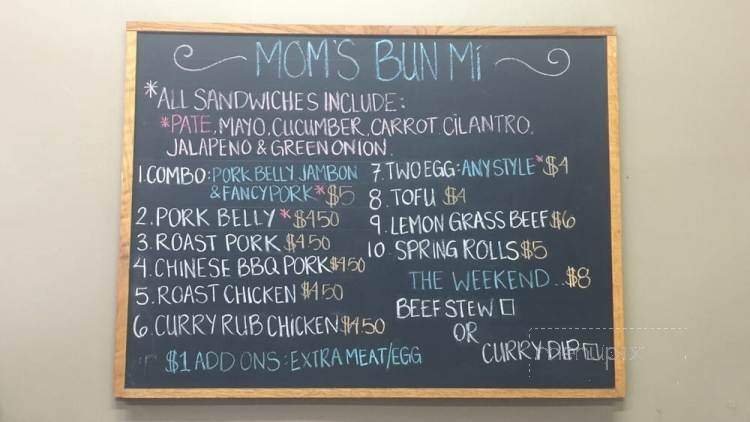 MOM'S BUN Mi
*ALL SANDWICHES INCLUDE:
*PATE, MAYO, CUCUMBER, CARROT, CiLANTRO,
JALAPENO & GREEN ONION.
1. COMBO: PORK BELLY JAMBON
& FANCY PORK * $5
2. PORK BELLY * $4.50
3. ROAST PORK $4.50
4. CHINESE BBQ PORK $4.50
5. ROAST CHICKEN $4.50
6. CURRY RUB CHICKEN $4.50
7. TWO EGG: ANY STYLE * $4
8. TOFU $4
9. LEMON GRASS BEEF $6
10. SPRING ROLLS $5
THE WEEKEND... $8
BEEF STEW □
OR
CURRY DIP □
$1 ADD ONS: EXTRA MEAT/EGG